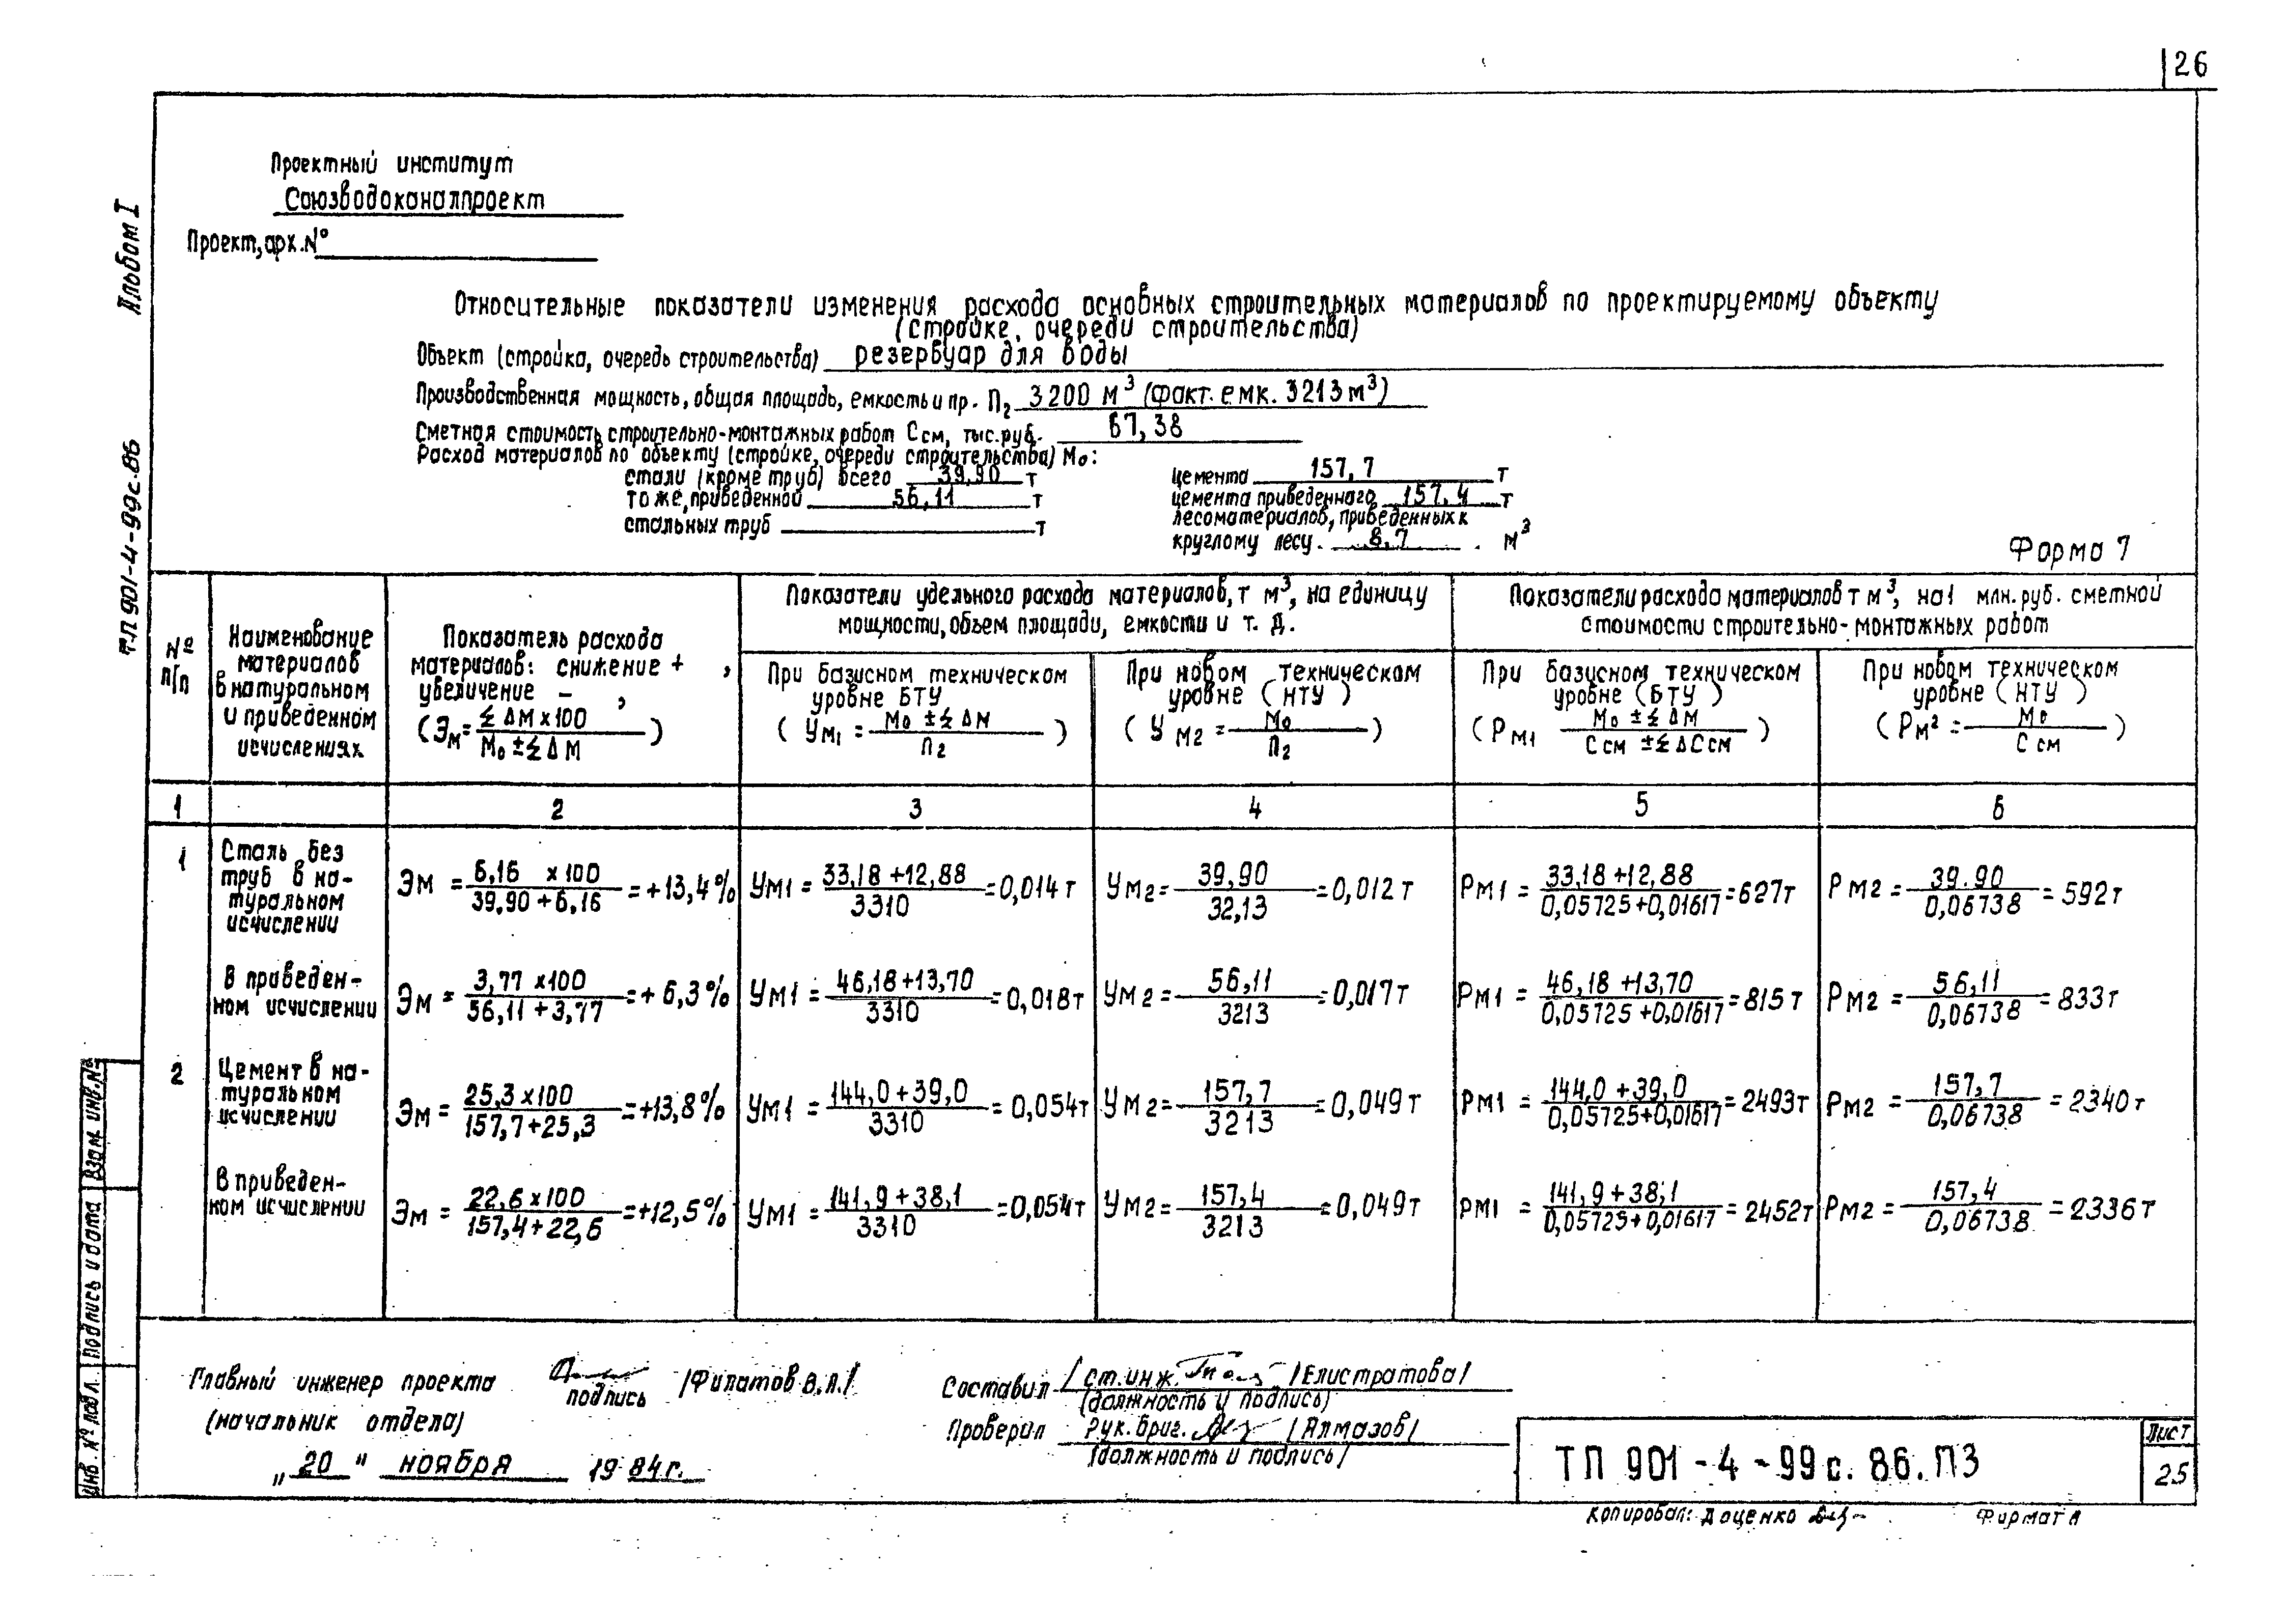 26
Проектный институт
Союзводоканалпроект
Проект, арх. №
Альбом I
ТП 901-4-99с.86
Относительные показатели изменения расхода основных строительных материалов по проектируемому объекту
(стройке, очереди строительства)
Объект (стройка, очередь строительства) резервуар для воды
Производственная мощность, общая площадь, емкость и пр. П₂ 3200 м³ (факт. емк. 3213 м³)
Сметная стоимость строительно-монтажных работ Ссм, тыс. руб. 67,38
Расход материалов по объекту (стройке, очереди строительства) Мо:
стали (кроме труб) всего 39,90 т
то же, приведенной 56,11 т
стальных труб т
цемента 157,7 т
цемента приведенного 157,4 т
лесоматериалов, приведенных к
круглому лесу. 8,7 . м³
Форма 7
№ п/п
Наименование
материалов
в натуральном
и приведенном
исчислениях
Показатель расхода
материалов: снижение + ,
увеличение - ,
(Эм = ≤ ΔМ х 100 / Мо ± ≤ ΔМ)
Показатели удельного расхода материалов, т м³, на единицу
мощности, объем площади, емкости и т. д.
При базисном техническом
уровне БТУ
( Ум1 = Мо ± ≤ ΔМ / П2 )
При новом техническом
уровне ( НТУ )
( У м2 = Мо / П2 )
Показатели расхода материалов т м³, на 1 млн. руб. сметной
стоимости строительно-монтажных работ
При базисном техническом
уровне (БТУ )
( Рм1 Мо ± ≤ ΔМ / Ссм ± ≤ ΔСсм )
При новом техническом
уровне ( НТУ )
( Рм² = Мо / Ссм )
1 2 3 4 5 6
1
Сталь без
труб в на-
туральном
исчислении
Эм = 6,16 х 100 / 39,90 + 6,16 = +13,4%
Ум1 = 33,18 + 12,88 / 3310 = 0,014 т
Ум2 = 39,90 / 32,13 = 0,012 т
Рм1 = 33,18 + 12,88 / 0,05725 + 0,01617 = 627 т
Рм2 = 39.90 / 0,06738 = 592 т
В приведен-
ном исчислении
Эм = 3,77 х 100 / 56,11 + 3,77 = + 6,3%
Ум1 = 46,18 + 13,70 / 3310 = 0,018 т
Ум2 = 56,11 / 3213 = 0,017 т
Рм1 = 46,18 + 13,70 / 0,05725 + 0,01617 = 815 т
Рм2 = 56,11 / 0,06738 = 833 т
2
Цемент в на-
туральном
исчислении
Эм = 25,3 х 100 / 157,7 + 25,3 = +13,8%
Ум1 = 144,0 + 39,0 / 3310 = 0,054 т
Ум2 = 157,7 / 3213 = 0,049 т
Рм1 = 144,0 + 39,0 / 0,05725 + 0,01617 = 2493 т
Рм2 = 157,7 / 0,06738 = 2340 т
В приведен-
ном исчислении
Эм = 22,6 х 100 / 157,4 + 22,6 = +12,5%
Ум1 = 141,9 + 38,1 / 3310 = 0,054 т
Ум2 = 157,4 / 3213 = 0,049 т
Рм1 = 141,9 + 38,1 / 0,05725 + 0,01617 = 2452 т
Рм2 = 157,4 / 0,06738 = 2336 т
Главный инженер проекта /Филатов В.Л./
подпись
(начальник отдела)
„ 20 " ноября 1984 г.
Составил / ст. инж. /Елистратова/
(должность и подпись)
Проверил Рук. бриг. /Алмазов/
/должность и подпись/
ТП 901-4-99с. 86. ПЗ
Лист
25
Копировал: Доценко
Формат А
Инв. № подл.
Подпись и дата
Взам. инв. №